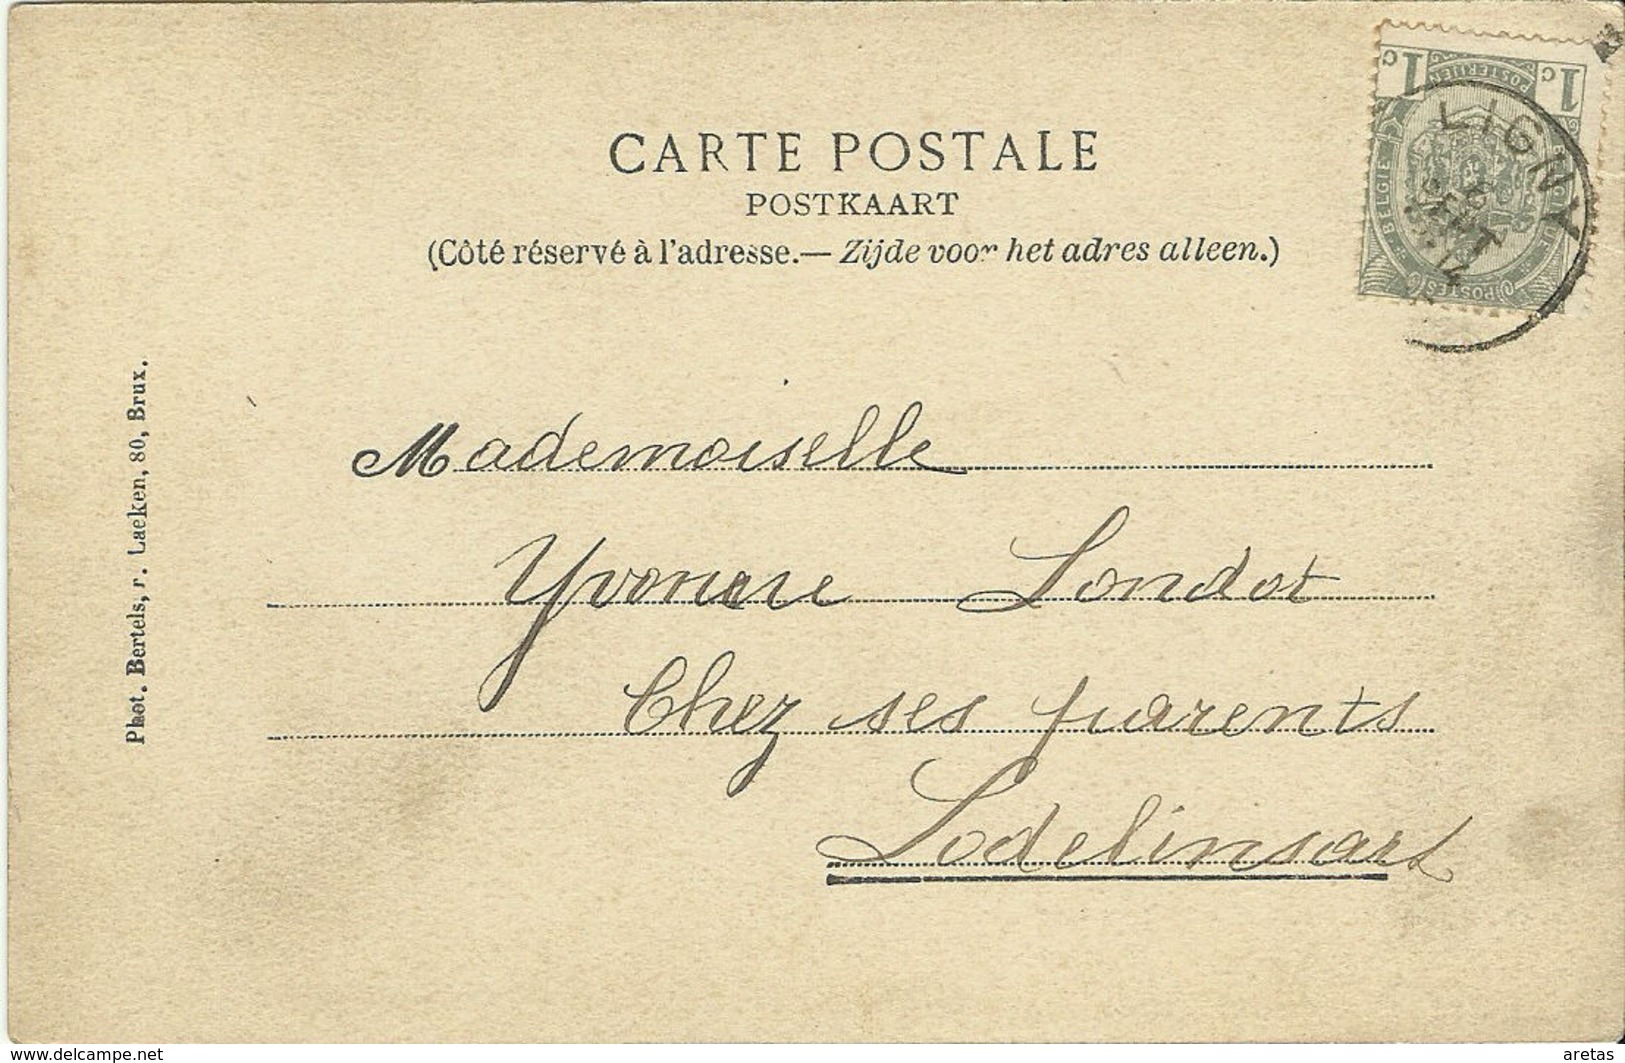 CARTE POSTALE
POSTKAART
(Côté réservé à l'adresse.— Zijde voor het adres alleen.)
1 c
POSTERIJEN
1 c
BELGIE
POSTES
LIGNY
6
SEPT
Phot. Bertels, r. Laeken, 80, Brux.
Mademoiselle
Yvonne Londot
Chez ses parents
Lodelinsart
www.delcampe.net
aretas